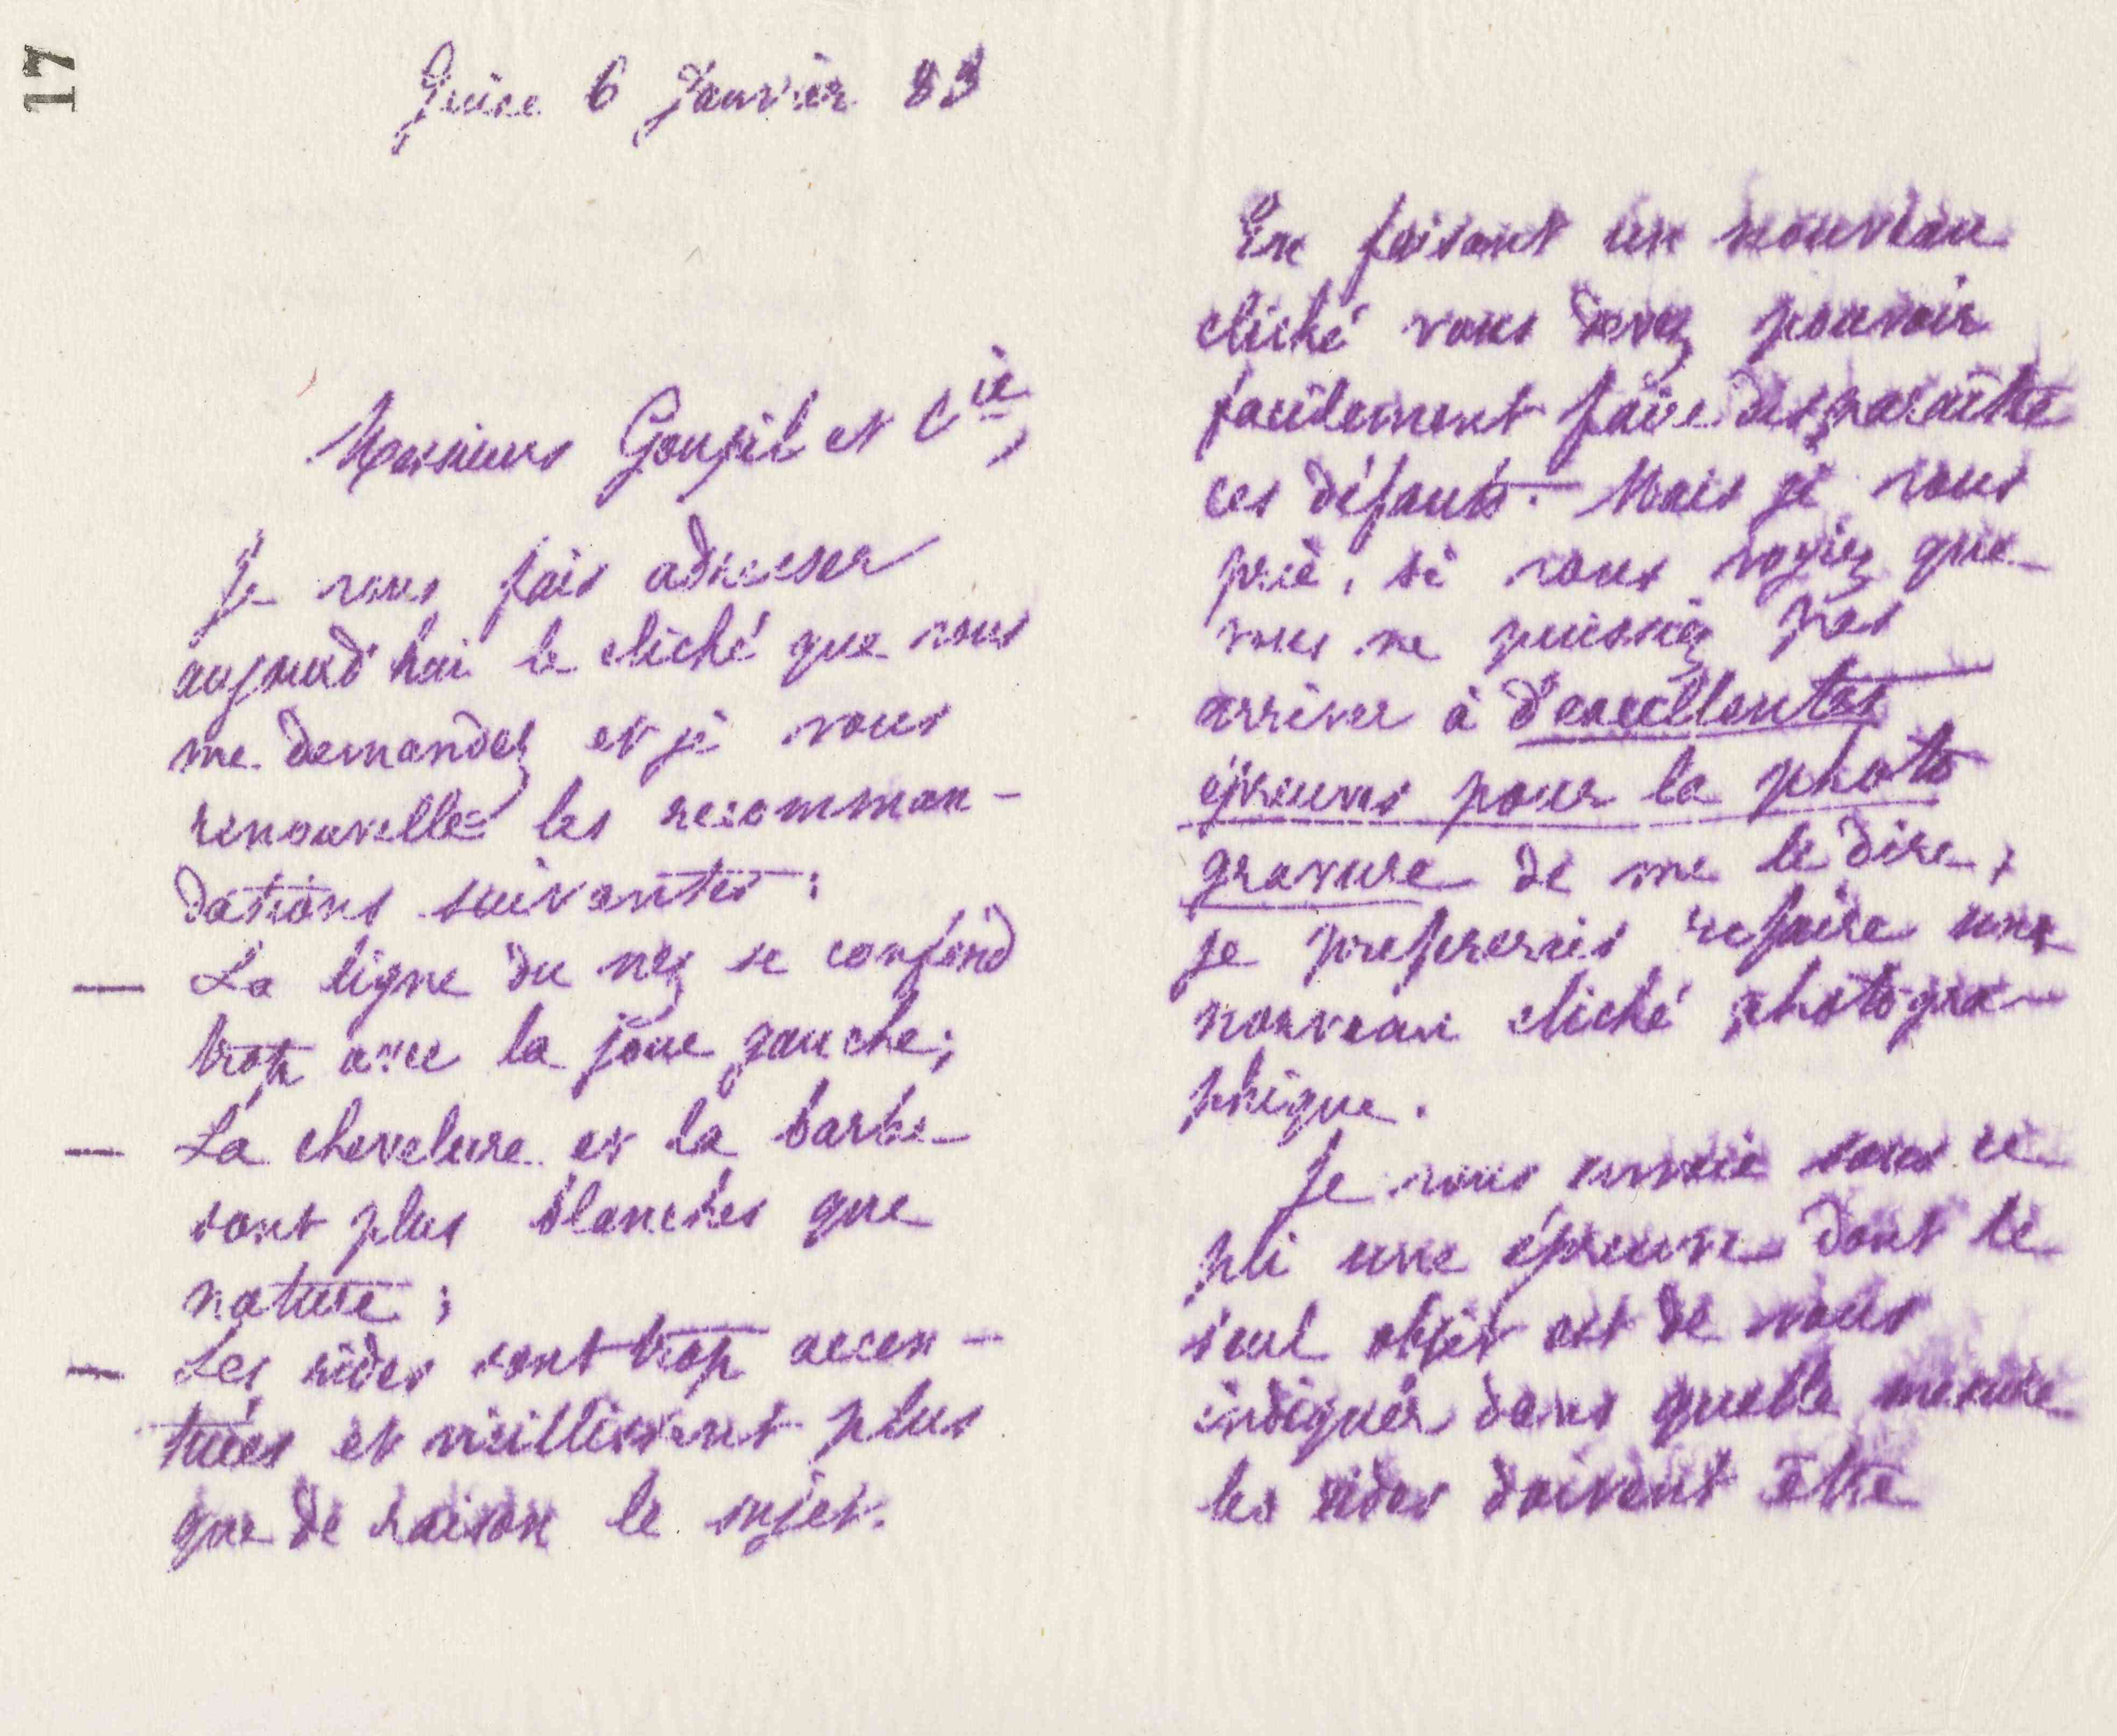 17
Guise 6 Janvier 83
Messieurs Goupil et Cie,
Je vous fais adresser
aujourd'hui le cliché que vous
me demandez et je vous
renouvelle les recomman-
dations suivantes :
— La ligne du nez se confond
trop avec la joue gauche ;
— La chevelure et la barbe
sont plus blanches que
nature ;
— Les rides sont trop accen-
tuées et vieillissent plus
que de raison le sujet.
En faisant un nouveau
cliché vous devez pouvoir
facilement faire disparaître
ces défauts. — Mais je vous
prie, si vous voyiez que
vous ne puissiez pas
arriver à d'excellentes
épreuves pour la photo
gravure de me le dire,
je prefererais refaire un
nouveau cliché photogra-
phique.
Je vous envoie sous ce
pli une épreuve dont le
seul objet est de vous
indiquer dans quelle mesure
les rides doivent être